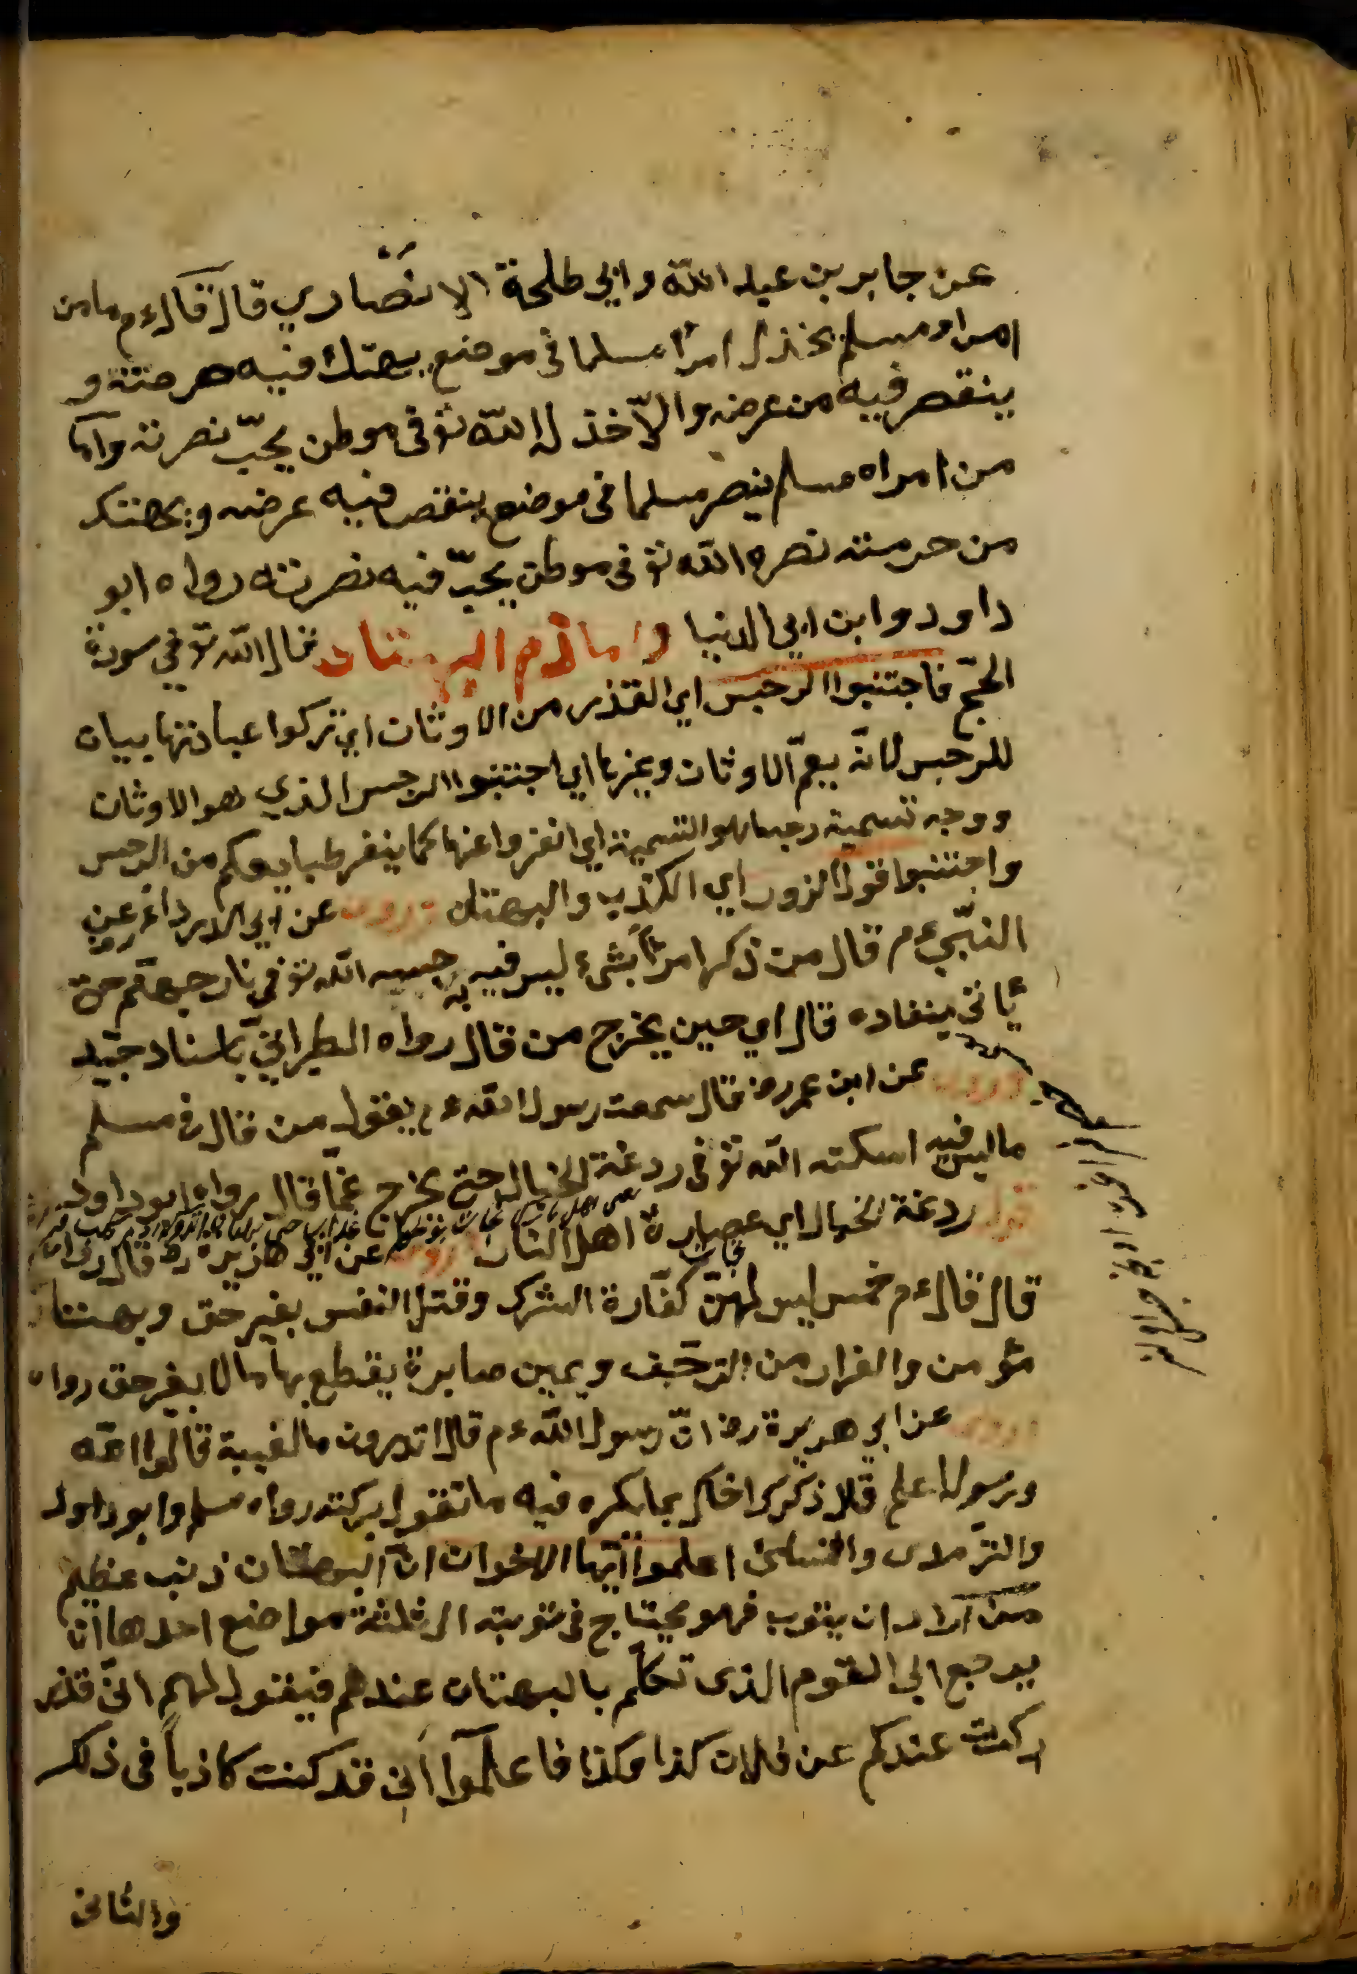 عن جابر بن عبد الله وابي طلحة الانصاري قال قال ء م ما من
امراء مسلم يخذل امرأ مسلما فى موضع يهتك فيه حرمته و
ينقص فيه من عرضه والا خذله الله تو فى موطن يحبّ نصرته وما
من امراء مسلم ينصر مسلما فى موضع ينقص فيه عرضه ويهتك
من حرمته نصره الله تو فى موطن يحبّ فيه نصرته رواه ابو
داود وابن ابي الدنيا واما ذم البهتان قال الله تو في سورة
الحجّ فاجتنبوا الرجس اي القذر من الاوثان اي تركوا عبادتها بيان
للرجس لانّه يعمّ الاوثان وغيرها اي اجتنبوا الرجس الذي هو الاوثان
ووجه تسمية رجسا هو التسمية اي انفروا عنها كما ينفر طبايعكم من الرجس
واجتنبوا قول الزور اي الكذب والبهتان وروى عن ابي الدرداء رض عن
النبّي ء م قال من ذكر امرأ بشىء ليس فيه به حبسه الله تو في نار جهنّم حتى
يأتى بنفاده قال اي حين يخرج من قال رواه الطبرانيّ باسناد جيّد
وروى عن ابن عمر رض قال سمعت رسول الله ء م يقول من قال فى مسلم
ما ليس فيه اسكنه الله تو فى ردغة الخبال حتى يخرج عمّا قال رواه ابو داود
قوله ردغة الخبال اي عصارة اهل النار وروى عن ابي هريرة رض
قال قال ء م خمس ليس لهنّ كفّارة الشرك وقتل النفس بغير حق وبهتان
مؤمن والفرار من الزحف ويمين صابرة يقطع بها مالا بغير حق رواه
وروى عن ابي هريرة رض انّ رسول الله ء م قال اتدرون ما الغيبة قالوا الله
ورسوله اعلم قال ذكرك اخاك بما يكره فيه ما تقول رواه مسلم وابو داود
والترمذى والنسائى اعلموا ايّها الاخوان انّ البهتان ذنب عظيم
من اراد ان يتوب فهو يحتاج فى توبته الى ثلثة مواضع احدها ان
يرجع الى القوم الذى تكلّم بالبهتان عندهم فيقول لهم انّى قد ذ
كرت عندكم عن فلان كذا وكذا فاعلموا انى قد كنت كاذباً فى ذلك
والثانى